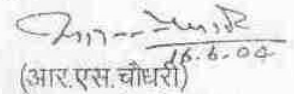 16.6.04
(आर.एस.चौधरी)